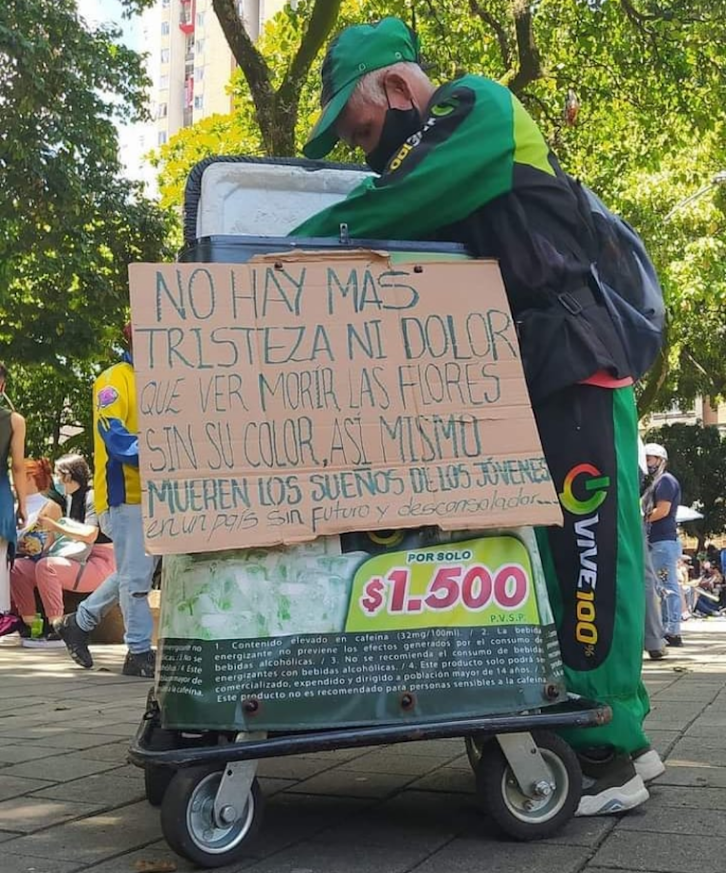 NO HAY MÁS
TRISTEZA NI DOLOR
QUE VER MORÍR LAS FLORES
SIN SU COLOR, ASÍ MISMO
MUEREN LOS SUEÑOS DE LOS JÓVENES
en un país sin futuro y desconsolador...
POR SOLO
$1.500
P.V.S.P.
1. Contenido elevado en cafeína (32mg/100ml). / 2. La bebida
energizante no previene los efectos generados por el consumo de
bebidas alcohólicas. / 3. No se recomienda el consumo de bebidas
energizantes con bebidas alcohólicas. / 4. Este producto solo podrá ser
comercializado, expendido y dirigido a población mayor de 14 años. / 5.
Este producto no es recomendado para personas sensibles a la cafeína.
VIVE100%